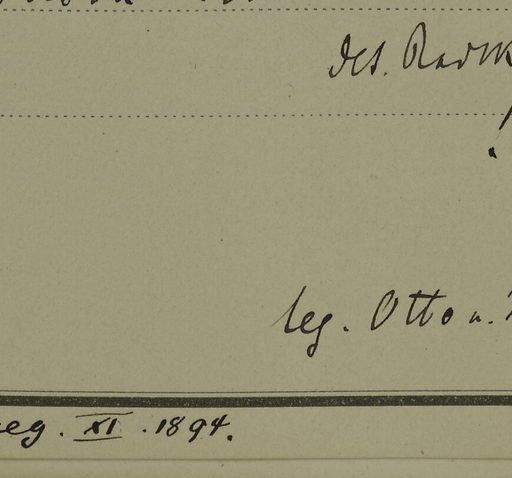 det. Radlk
!
leg. Otto u.
leg. XI. 1894.